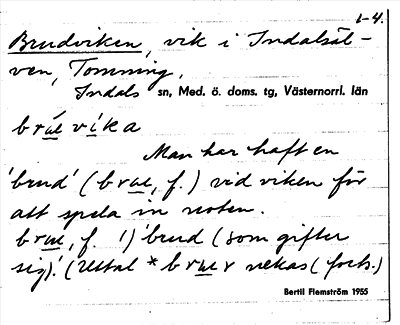 1-4.
Brudviken, vik i Indalsäl-
ven, Tomming,
Indals sn, Med. ö. doms. tg, Västernorrl. län
brúe víka
Man har haft en
'brud' (brue, f.) vid viken för
att spela in noten.
brue, f. 1) 'brud (som gifter
sig)'. (Uttal *bruer nekas (forts.)
Bertil Flemström 1955